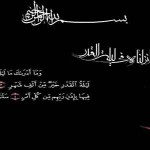 بسم الله الرحمن الرحيم
انا انزلناه في ليلة القدر
وَمَا أَدْرَىٰكَ مَا
لَيْلَةُ الْقَدْرِ خَيْرٌ مِّنْ أَلْفِ شَهْرٍ
فِيهَا بِإِذْنِ رَبِّهِم مِّن كُلِّ أَمْرٍ